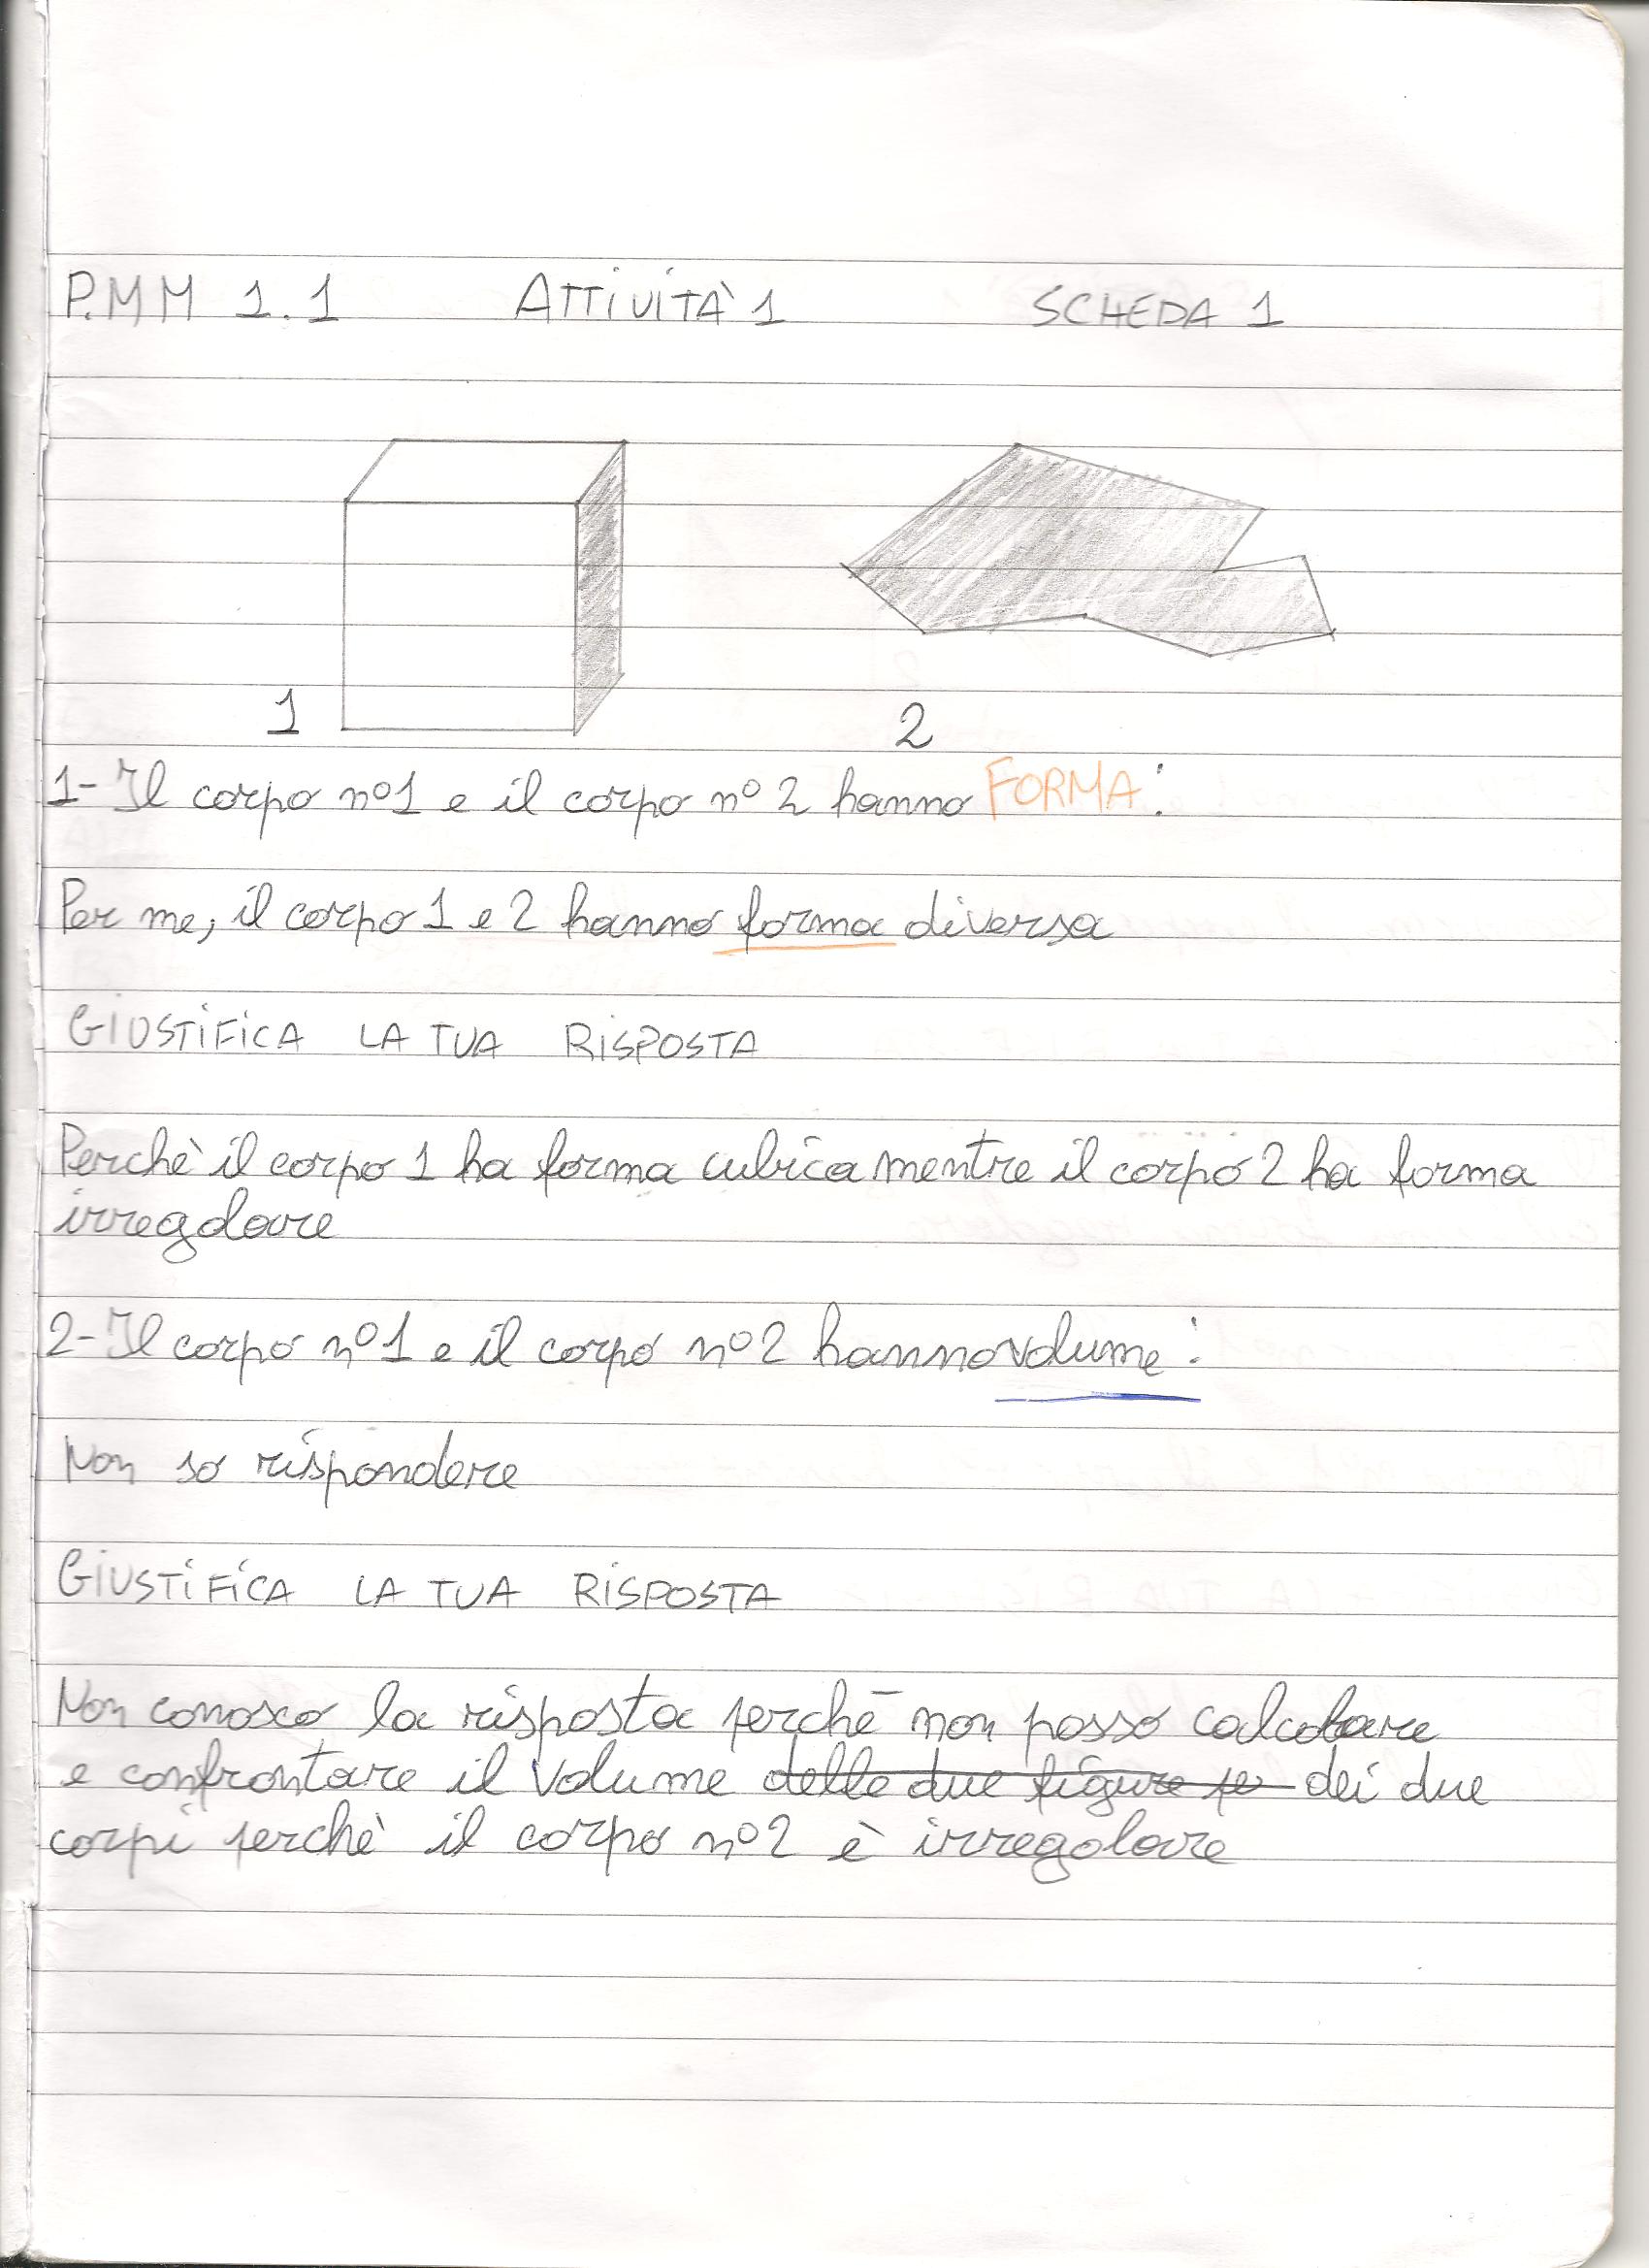 P.MM 1.1 ATTIVITÀ 1 SCHEDA 1
1 2
1- Il corpo n°1 e il corpo n° 2 hanno FORMA:
Per me, il corpo 1 e 2 hanno forma diversa
GIUSTIFICA LA TUA RISPOSTA
Perchè il corpo 1 ha forma cubica mentre il corpo 2 ha forma
irregolare
2- Il corpo n°1 e il corpo n°2 hanno volume:
Non so rispondere
GIUSTIFICA LA TUA RISPOSTA
Non conosco la risposta perchè non posso calcolare
e confrontare il volume delle due figure pe dei due
corpi perchè il corpo n°2 è irregolare